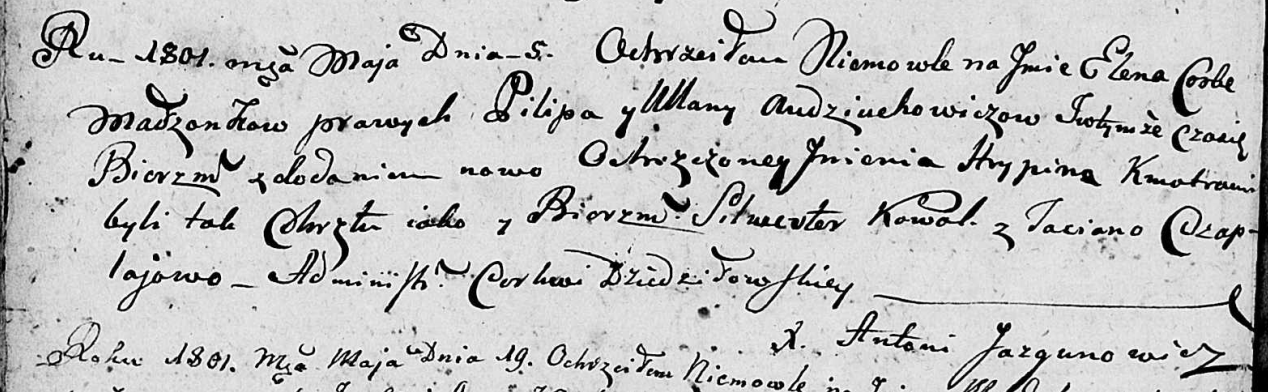 Ru 1801. mca Maja Dnia 5. Ochrzciłem Niemowle na Jmie Elena Corke
Małżonkow prawych Pilipa y Ullany Audziuchowiczow Totymże czasie
Bierzm z dodaniem nowo Ochrzczoney Jmienia Hrypina Kmotrami
byli tak Chrztu iako y Bierzm. Silwester Kowal. z Taciano Czap-
lajowo _ Administr. Cerkwi Dziedziłowskiey
X. Antoni Jazgunowicz
Roku 1801. Mca Maja Dnia 19. Ochrzciłem Niemowle na